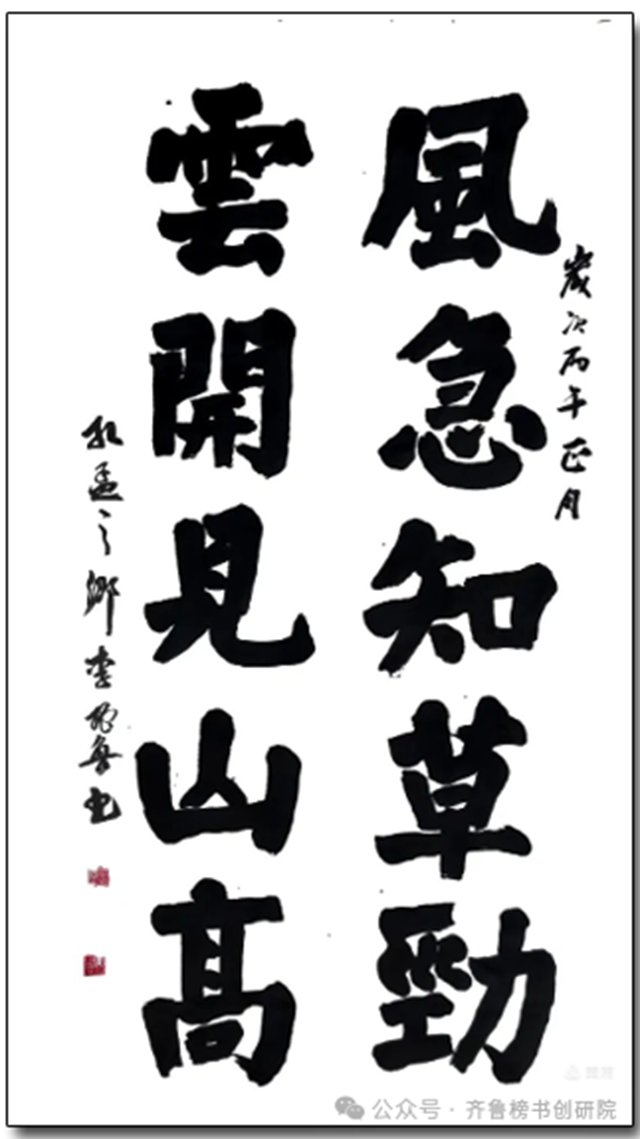 歲次丙午正月
風急知草勁
雲開見山高
孔孟之鄉李魯书
公众号 · 齐鲁榜书创研院